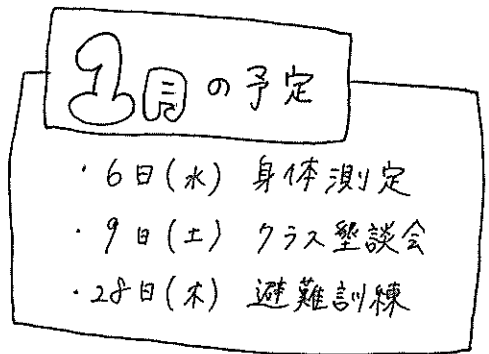 1月の予定
・6日(水) 身体測定
・9日(土) クラス懇談会
・28日(木) 避難訓練